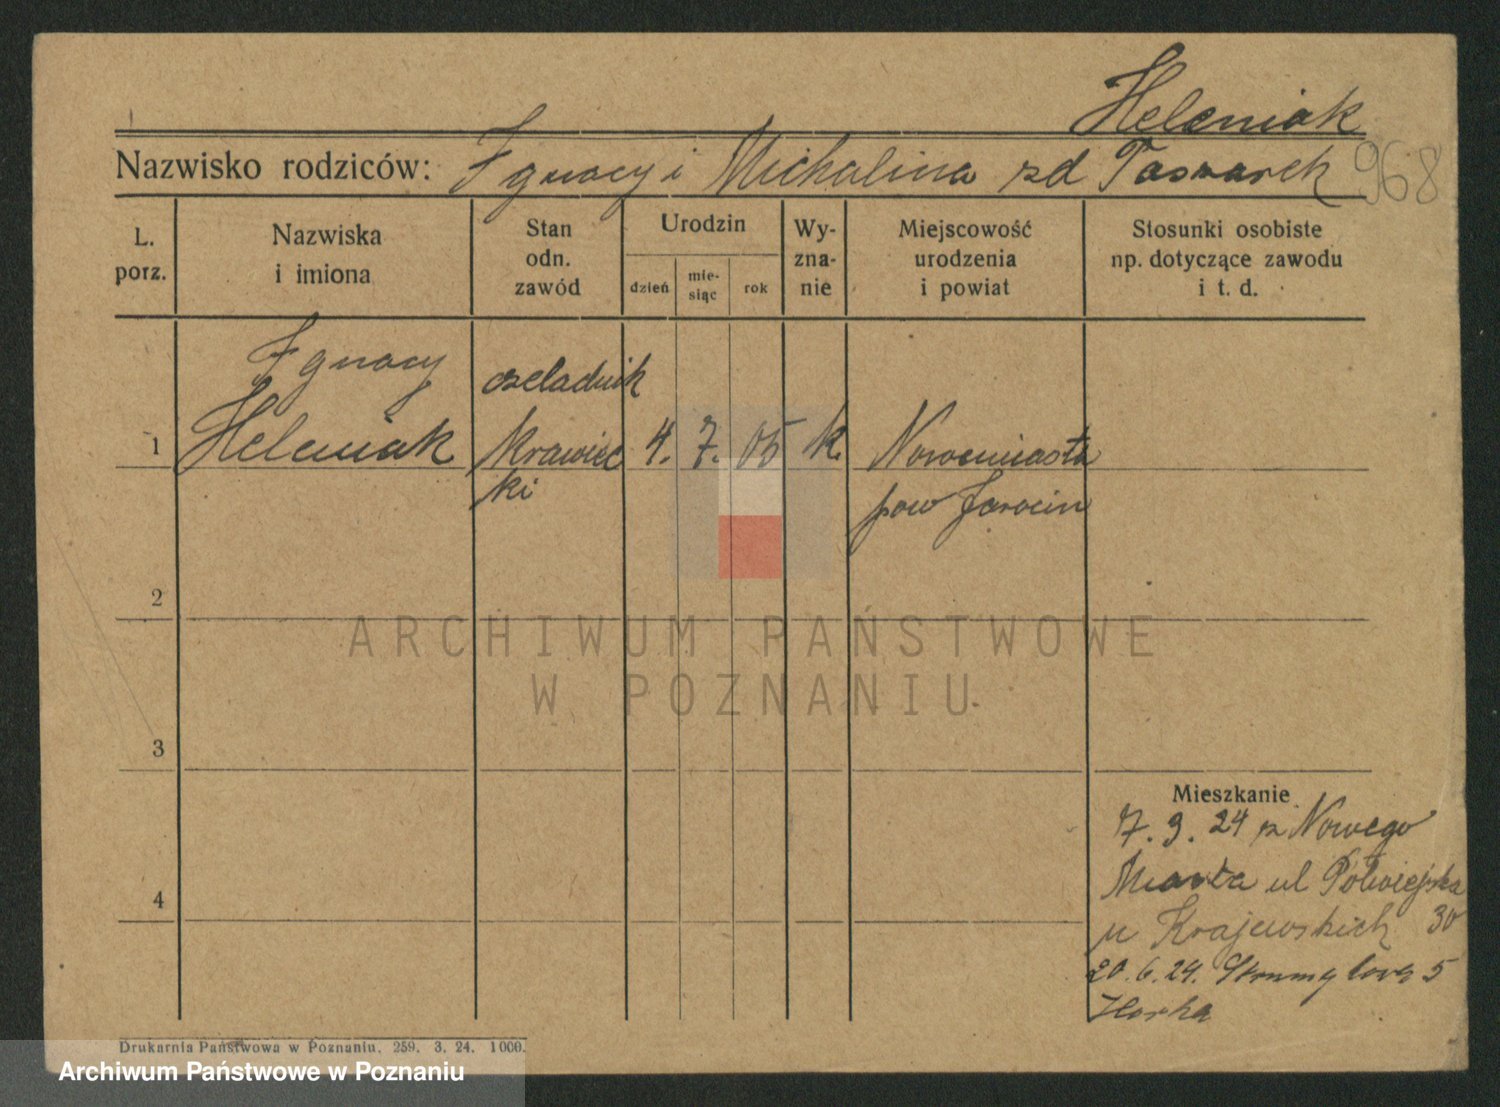 Heleniak
Nazwisko rodziców: Ignacy i Michalina zd Taszarek 968
L. porz.
Nazwiska i imiona
Stan odn. zawód
Urodzin
dzień
mie-siąc
rok
Wy-zna-nie
Miejscowość urodzenia i powiat
Stosunki osobiste np. dotyczące zawodu i t. d.
Ignacy czeladnik
1 Heleniak krawiec 4. 7. 05 k. Nowemiasta
ki pow Jarocin
2
ARCHIWUM PAŃSTWOWE
W POZNANIU
3
Mieszkanie
7. 3. 24 z Nowego
Miasta ul Półwiejska
4
u Krajewskich 30
20. 6. 24. 5
Horka
Drukarnia Państwowa w Poznaniu. 259. 3. 24. 1000.
Archiwum Państwowe w Poznaniu